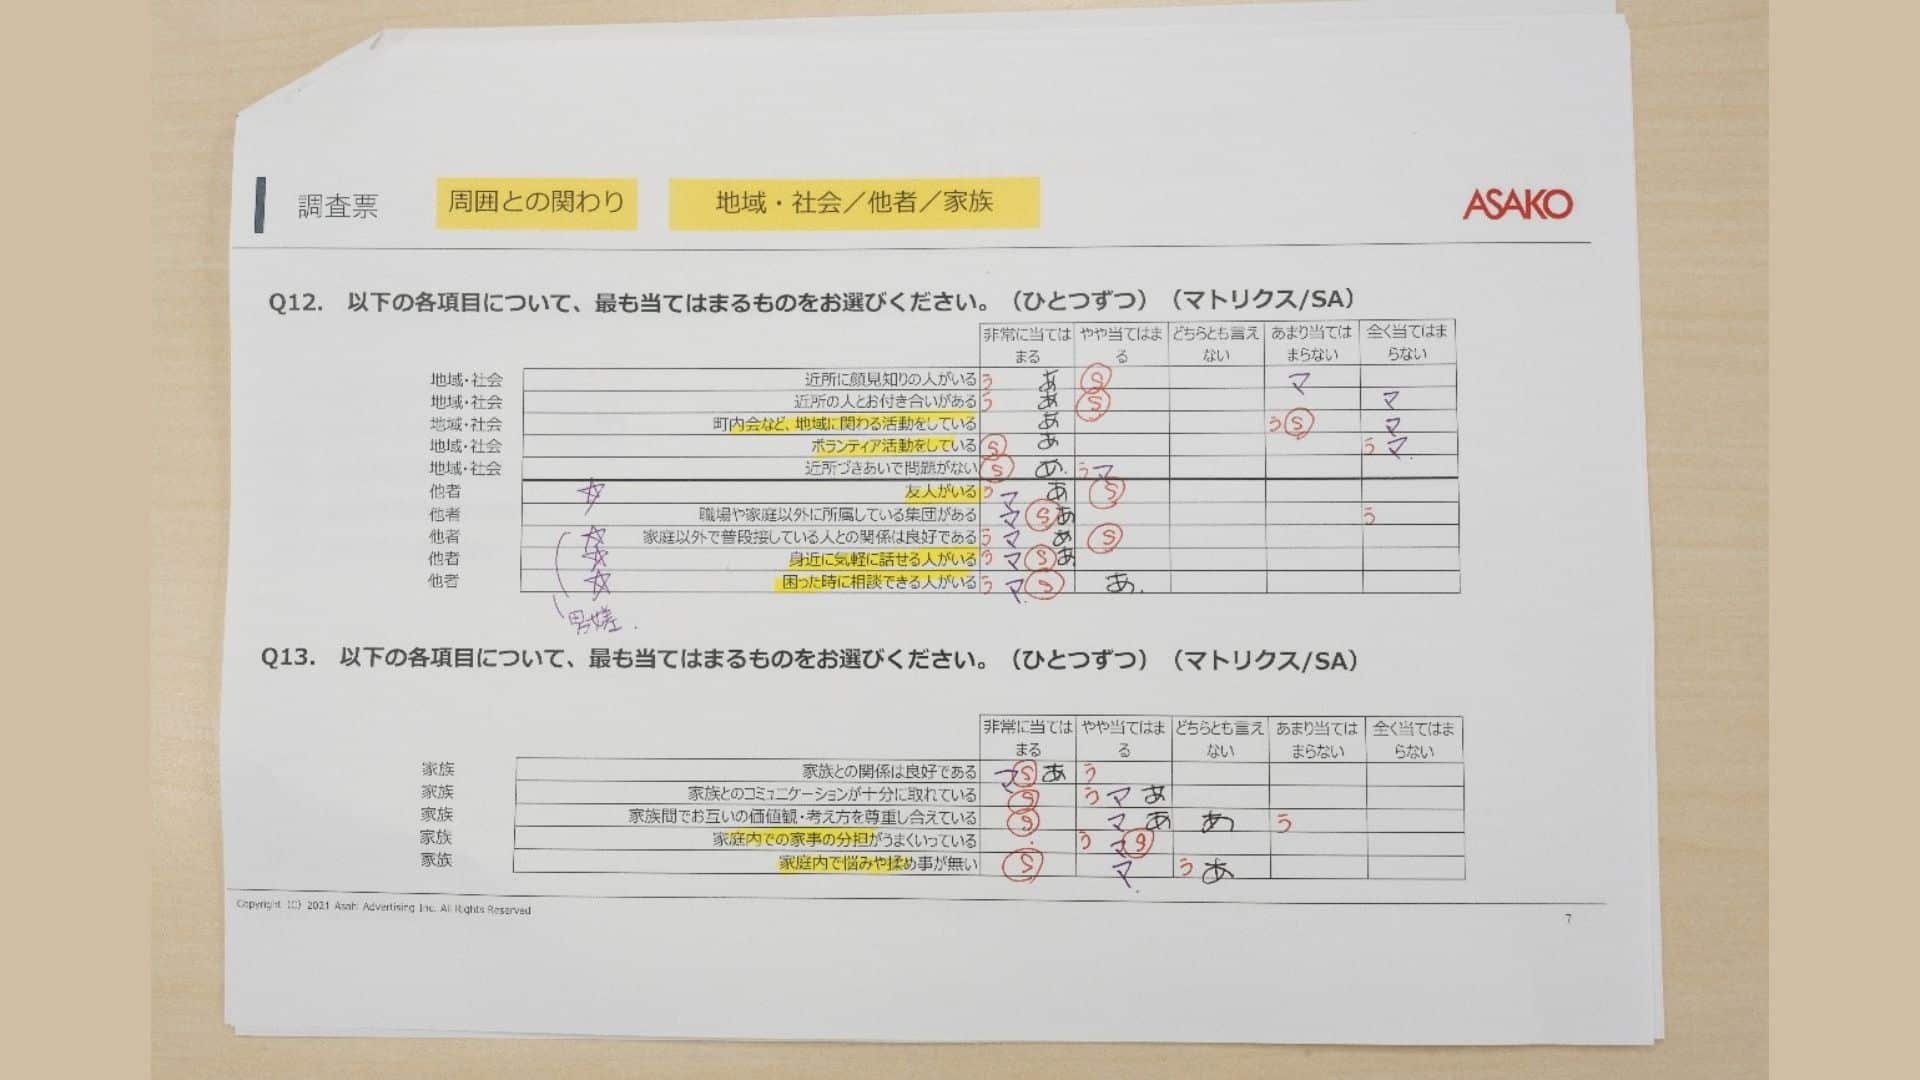 調査票 周囲との関わり 地域・社会／他者／家族 ASAKO
Q12. 以下の各項目について、最も当てはまるものをお選びください。（ひとつずつ）（マトリクス/SA）
非常に当てはまる やや当てはまる どちらとも言えない あまり当てはまらない 全く当てはまらない
地域・社会 近所に顔見知りの人がいる う あ S マ
地域・社会 近所の人とお付き合いがある う あ S マ
地域・社会 町内会など、地域に関わる活動をしている あ う S マ
地域・社会 ボランティア活動をしている S あ う マ
地域・社会 近所づきあいで問題がない S あ う マ
他者 ☆ 友人がいる う マ あ S
他者 職場や家庭以外に所属している集団がある マ S あ う
他者 ☆ 家庭以外で普段接している人との関係は良好である う マ あ S
他者 ☆ 身近に気軽に話せる人がいる う マ S あ
他者 ☆ 困った時に相談できる人がいる う マ S あ
Q13. 以下の各項目について、最も当てはまるものをお選びください。（ひとつずつ）（マトリクス/SA）
非常に当てはまる やや当てはまる どちらとも言えない あまり当てはまらない 全く当てはまらない
家族 家族との関係は良好である マ S あ う
家族 家族とのコミュニケーションが十分に取れている S う マ あ
家族 家族間でお互いの価値観・考え方を尊重し合えている S マ あ あ う
家族 家庭内での家事の分担がうまくいっている う マ S
家族 家庭内で悩みや揉め事が無い S マ う あ
Copyright (C) 2021 Asahi Advertising Inc. All Rights Reserved 7